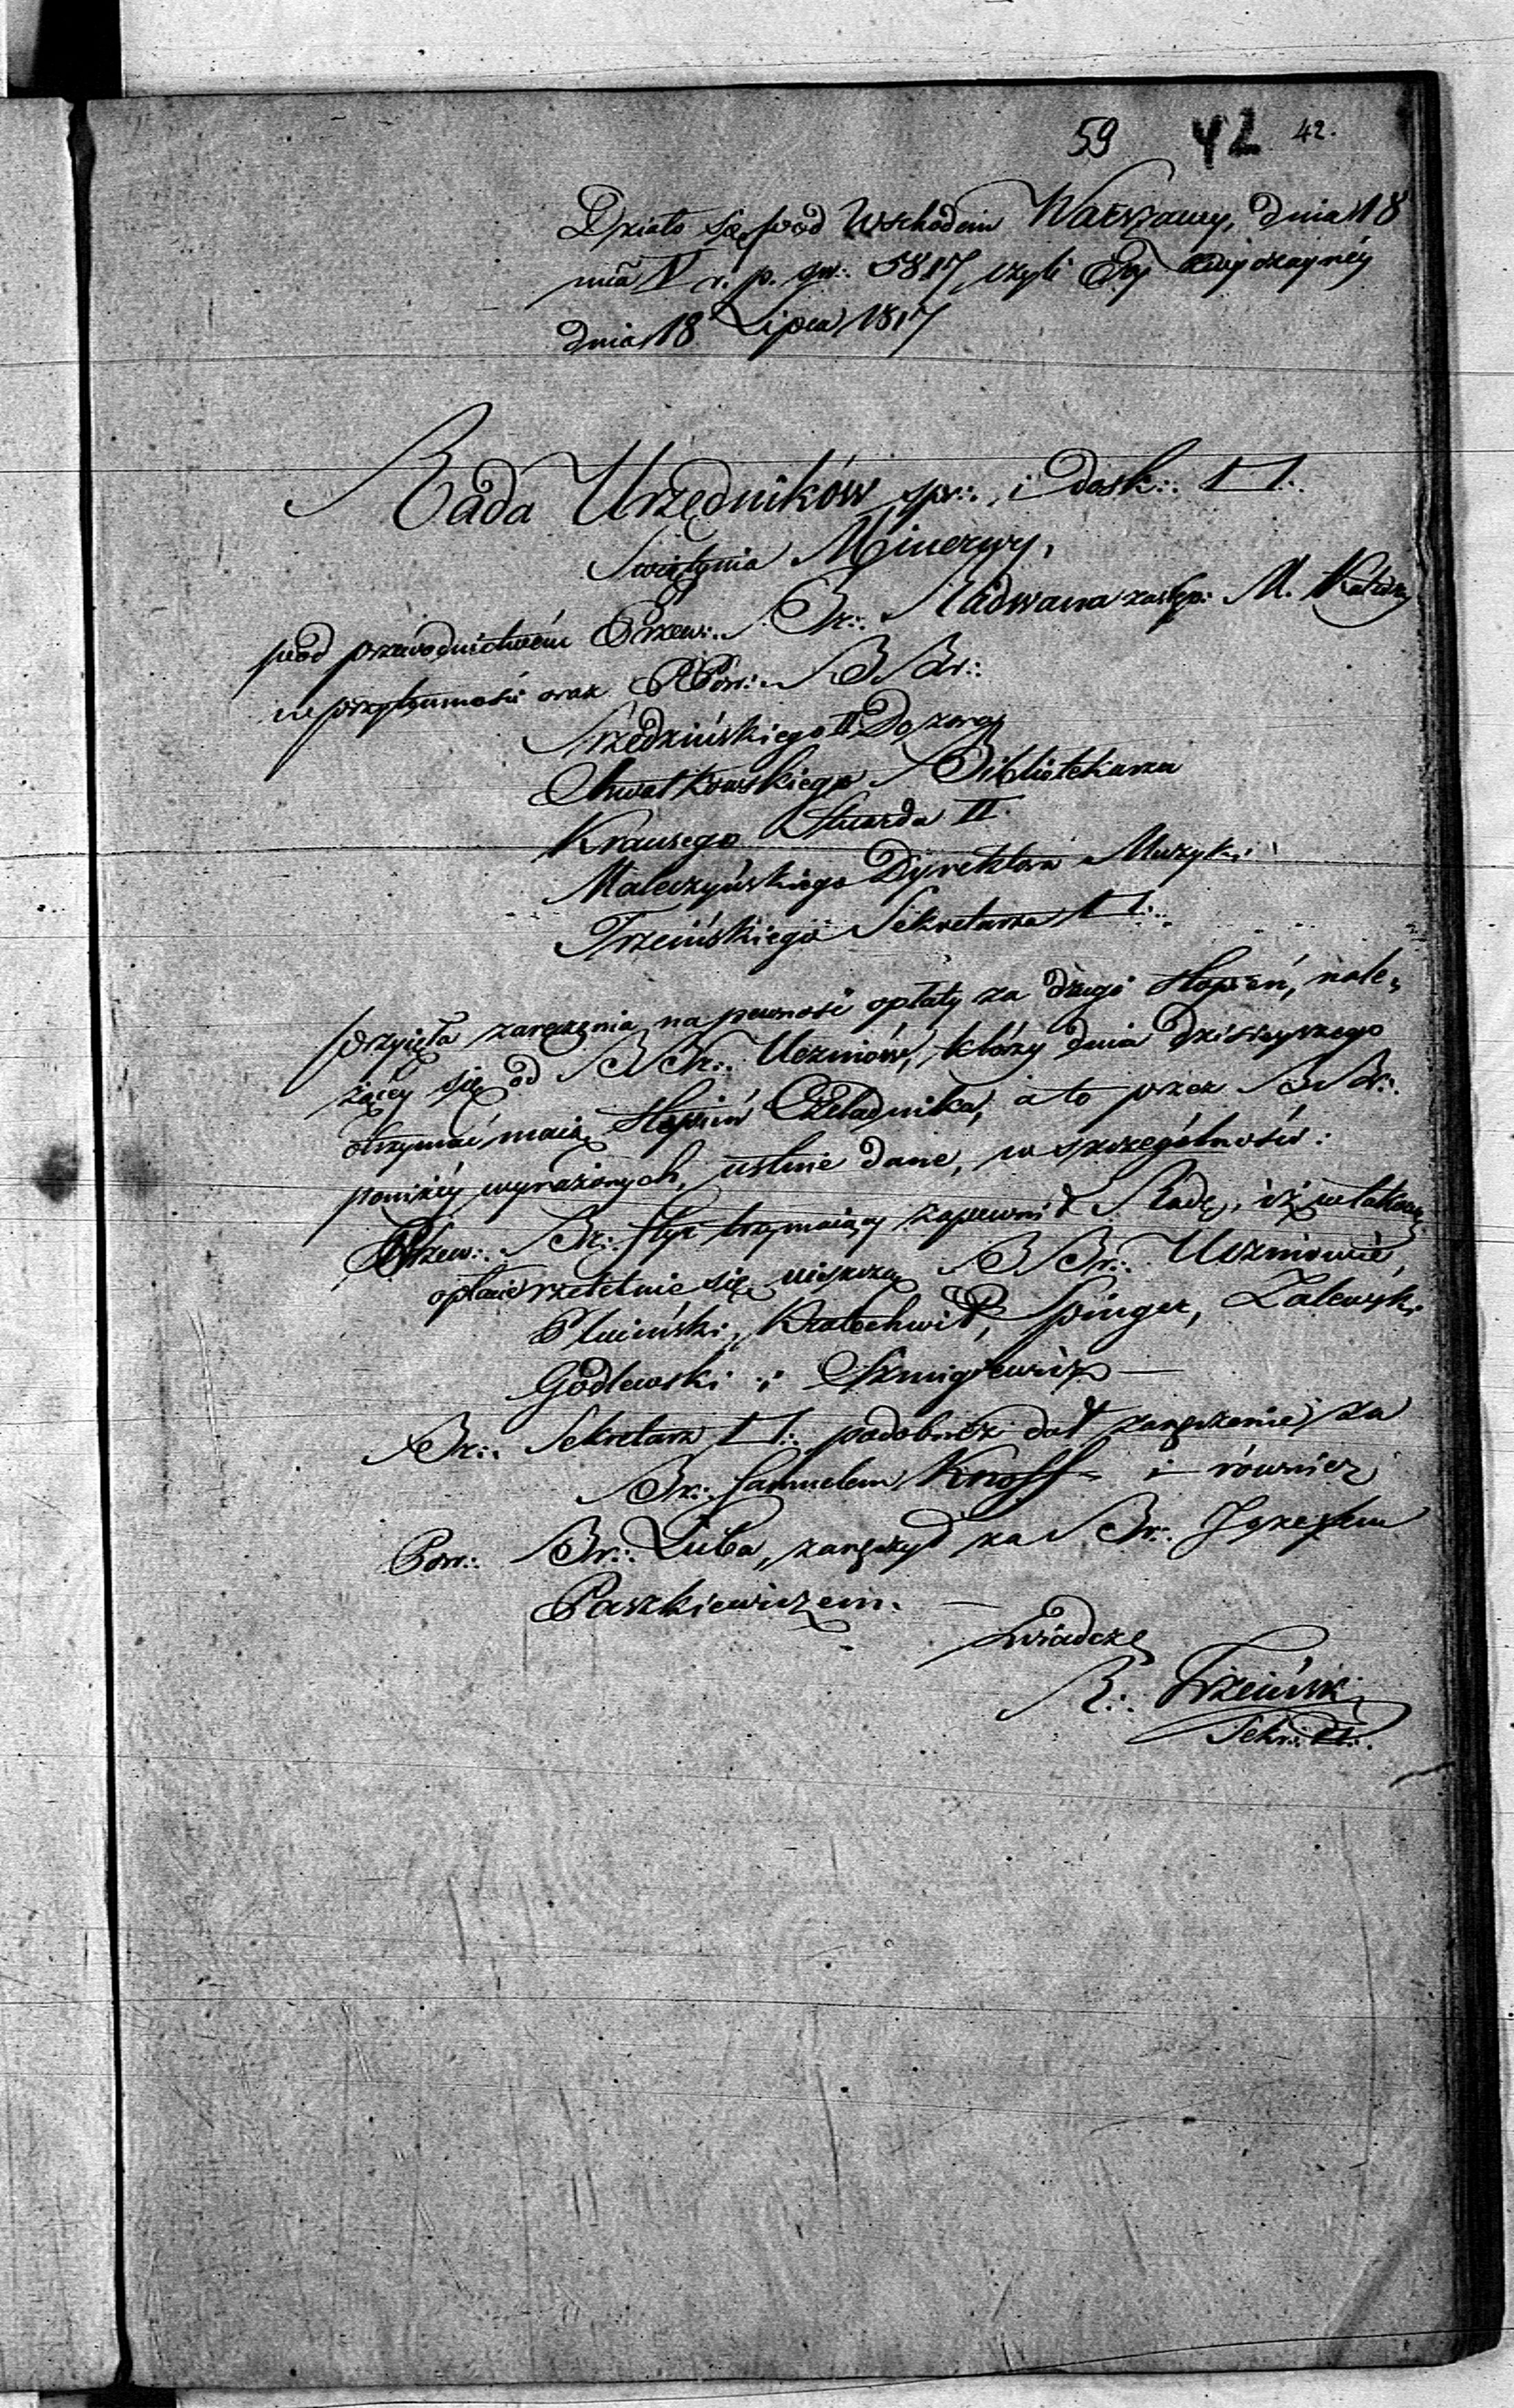 59 42 42.
Działo się pod Wschodem Warszawy, dnia 18
mca V r. p. św: 5817, czyli Ery zwyczayney
dnia 18 Lipca 1817
Rada Urzędników spr:. i dosk:. □:.
Swiątynia Minerwy,
pod przewodnictwem Przew:. Br:. Radwana zastęp: M. Katedry
w przytomości oraz PPow:. BBr:.
Srzedzińskiego II Dozorcy
Chwatkowskiego Bibliotekarza
Krausego Stuarda II.
Maleczyńskiego Dyrektora Muzyki
Trzcińskiego Sekretarza □:.
przyięła zaręczenia na pewność opłaty za drugi stopień, nale,
żącey się od BBr:. Uczniów, którzy dnia dzisieyszego
otrzymać maią stopień Czeladnika, a to przez BBr:.
poniżey wyrażonych, ustnie dane, w szczególności:
Przew:. Br:. ster trzymaiący zapewnił Radę, iż w takowey
opłacie rzetelnie się uiszczą BBr:. Uczniowie,
Pluciński, Kratochwil, Pinger, Zalewski
Godlewski i Szmigiewicz —
Br:. Sekretarz □:. podobnież dał zaręczenie za
Br:. Samuelem Knoff i również
Pow:. Br:. Luba, zaręczył za Br:. Jozefem
Paszkiewiczem. —
świadczę
R:. Trzciński
Sekr:. □:.